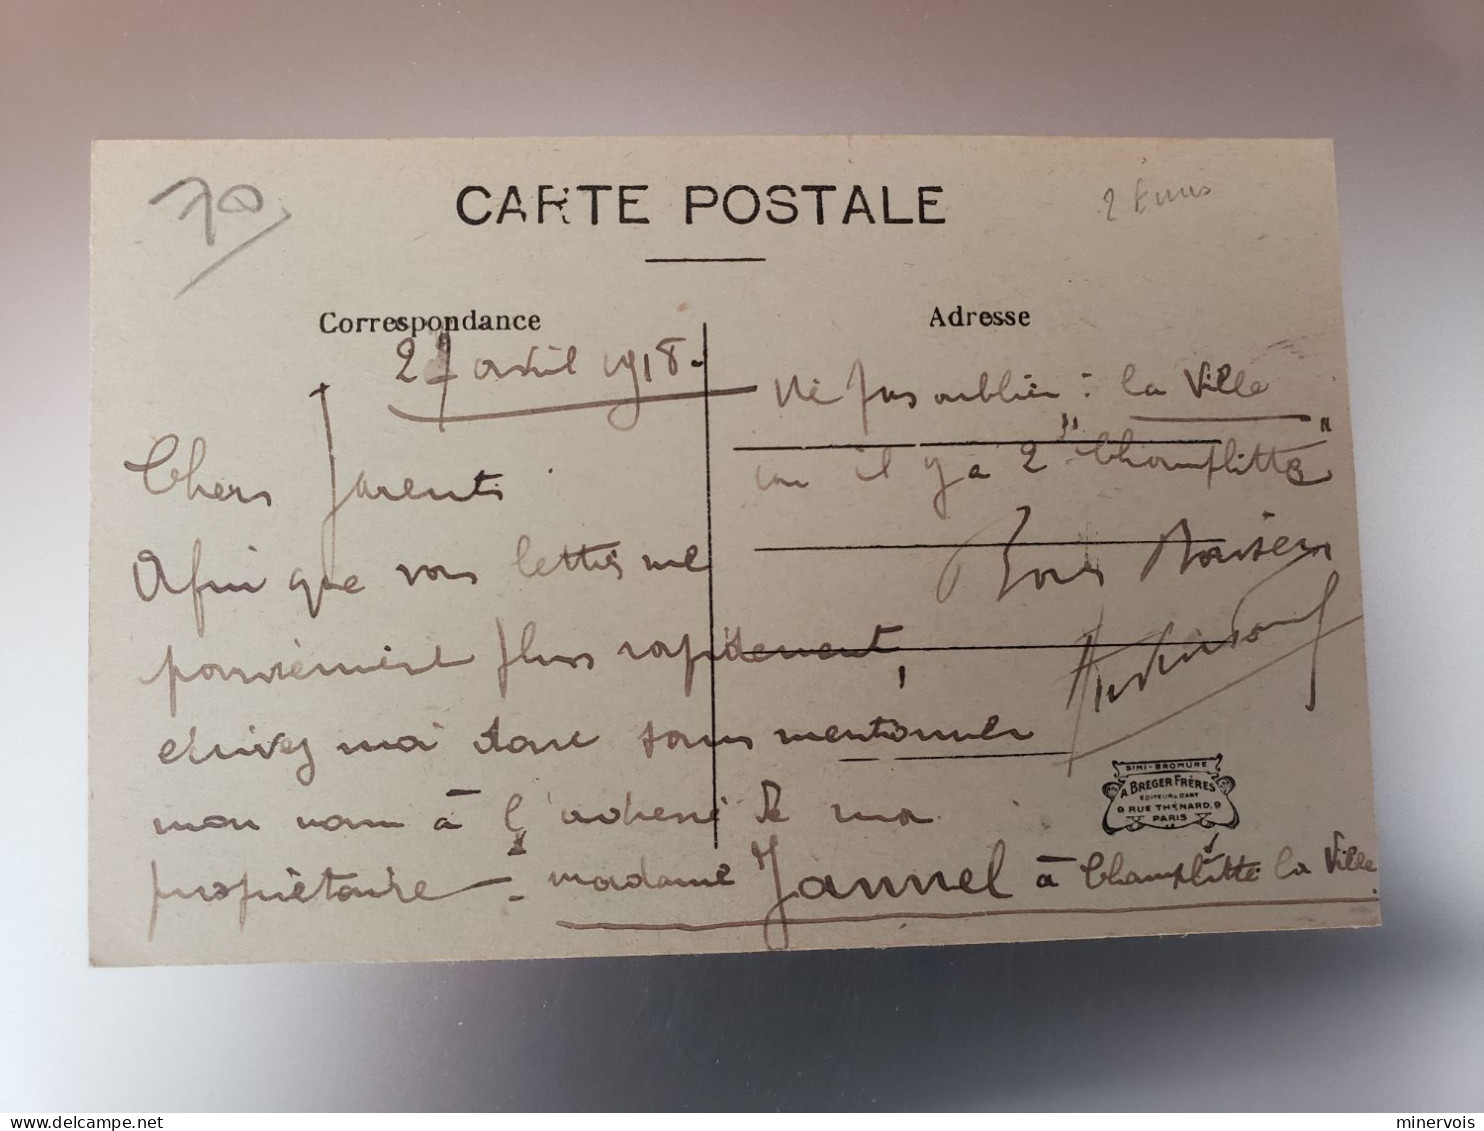 70
CARTE POSTALE
2
Correspondance
27 avril 1918 -
Chers parents
Afin que vos lettres me
parviennent plus rapidement,
écrivez moi donc sans mentionner
mon nom à l'adresse de ma
propriétaire - madame Jannel à Champlitte la Ville.
Adresse
Ne pas oublier : la Ville
car il y a 2 "Champlitte"
Bons Baisers
SIMI-BROMURE
A BREGER FRÈRES
EDITEURS D'ART
9 RUE THÉNARD, 9
PARIS
minervois